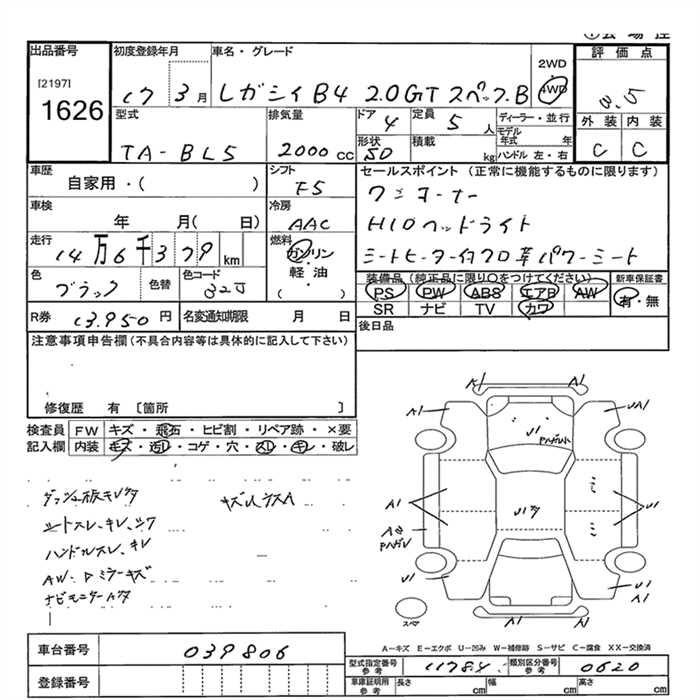 出品番号
[2197]
1626
初度登録年月
17 3月
車名・グレード
レガシイB4 2.0GT スペックB
2WD
・
4WD
評価点
3.5
型式
TA-BL5
排気量
2000cc
ドア
4
定員
5 人
ディーラー・並行
モデル年式 年
ハンドル 左・右
形状
SD
積載
kg
外装 内装
C C
車歴
自家用・( )
シフト
F5
セールスポイント (正常に機能するものに限ります)
ワンオーナー
HIDヘッドライト
シートヒーター付クロ革パワーシート
車検
年 月( 日)
冷房
AAC
走行
14万6千379km
燃料
ガソリン
軽油
( ・ )
色
ブラック
色替
色コード
32J
装備品 (純正品に限り〇をつけてください)
新車保証書
PS PW ABS エアB AW
SR ナビ TV カワ
有・無
R券
13,950円
名変通知期限 月 日
後日品
注意事項申告欄(不具合内容等は具体的に記入して下さい)
修復歴 有 〔箇所 〕
検査員 FW キズ・飛石・ヒビ割・リペア跡・×要
記入欄 内装 キズ・汚レ・コゲ・穴・スレ・キレ・破レ
ダッシュ板キレクタ
シートスレ、キレ、シワ
ハンドルスレ、キレ
AW・Dミラーキズ
ナビモニターAタ
A1 A1
A1 UA1
U1
A1 U1
U1 U1
A1 A1
スペア
A-キズ E-エクボ U-凹み W-補修跡 S-サビ C-腐食 XX-交換済
車台番号 039806
登録番号
型式指定番号 参考 11784
類別区分番号 参考 0620
車庫証明用 参考 長さ cm 幅 cm 高さ cm